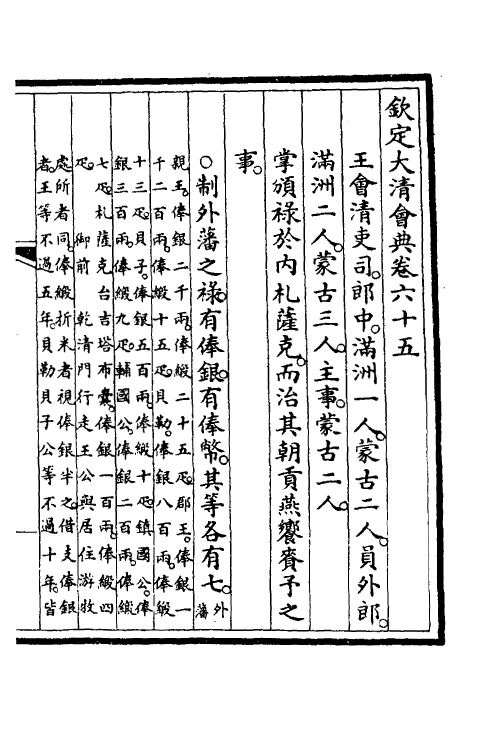 欽定大清會典卷六十五
王會清吏司。郎中。滿洲一人。蒙古二人。員外郎。
滿洲二人。蒙古三人。主事。蒙古二人。
掌頒祿於內札薩克。而治其朝貢燕饗賚予之
事。
○制外藩之祿。有俸銀。有俸幣。其等各有七。外藩
親王。俸銀二千兩。俸緞二十五疋。郡王。俸銀一
千二百兩。俸緞十五疋。貝勒。俸銀八百兩。俸緞
十三疋。貝子。俸銀五百兩。俸緞十疋。鎮國公。俸
銀三百兩。俸緞九疋。輔國公。俸銀二百兩。俸緞
七疋。札薩克台吉塔布囊。俸銀一百兩。俸緞四
疋。御前 乾清門行走王公與居住游牧
處所者同。俸緞折米者視俸銀半之。借支俸銀
者。王等不過五年。貝勒貝子公等不過十年。皆